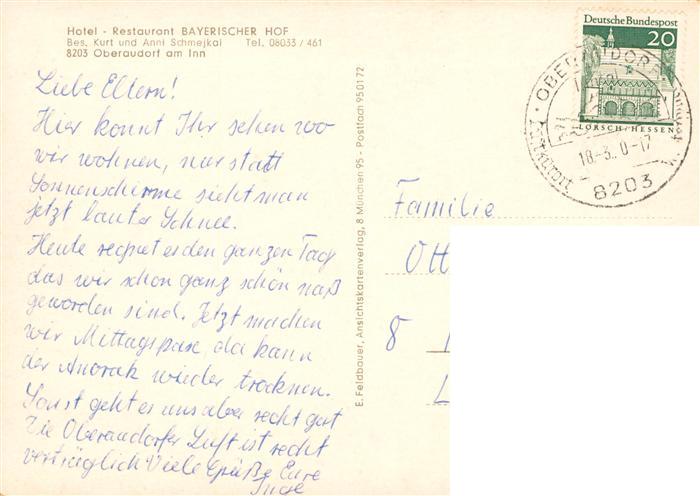 Hotel - Restaurant BAYERISCHER HOF
Bes. Kurt und Anni Schmejkal Tel. 08033 / 461
8203 Oberaudorf am Inn
Liebe Eltern!
Hier könnt Ihr sehen wo
wir wohnen, nur statt
Sonnenschirme sieht man
jetzt lauter Schnee.
Heute regnet es den ganzen Tag
das wir schon ganz schön naß
geworden sind. Jetzt machen
wir Mittagspase, da kann
der Anorak wieder trocknen.
Sonst geht es uns aber recht gut
Die Oberaudorfer Luft ist recht
verträglich Viele Grüße Eure
Inge
E. Feldbauer, Ansichtskartenverlag, 8 München 95 - Postfach 95 01 72
Deutsche Bundespost
20
LORSCH/HESSEN
OBERAUDORF
18.-3. 0-17
8203
Familie
Ott
8
L